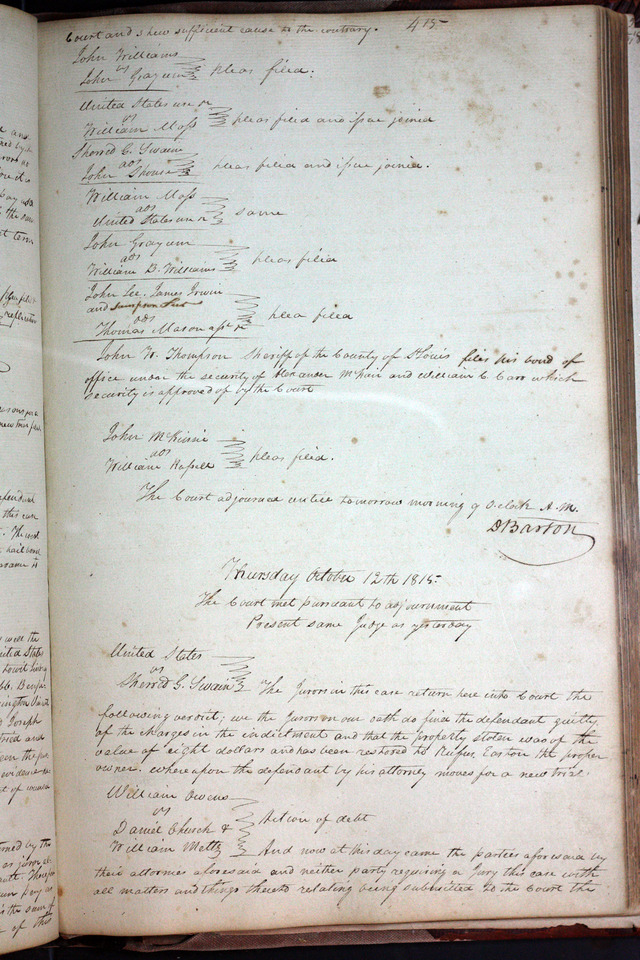 Court and shew sufficient cause to the contrary. 415
John Williams
vs
John Grayum
pleas filed.
United States use &c
vs
William Moss
pleas filed and issue joined
Sherred G. Swain
ads
John Shouse
pleas filed and issue joined.
William Moss
ads
United States use &c
same
John Grayum
ads
William B. Williams
pleas filed
John Lee. James Irwin
and
ads
Thomas Mason asse &c
plea filed
John W. Thompson Sheriff of the County of St Louis files his bond of
office under the security of Alexander McNair and William C. Carr which
security is approved of by the Court
John McKinnie
ads
William Russell
pleas filed.
The Court adjourned untill tomorrow morning 9 OClock A.M.
D Barton
Thursday October 12th 1815
The Court met pursuant to adjournment
Present same Judge as yesterday
United States
vs
Sherred G. Swain
The Jurors in this case return here into Court the
following verdict; we the Jurors on our oath do find the defendant guilty
of the charges in the indictment and that the property stolen was of the
value of eight dollars and has been restored to Rufus Easton the proper
owner. whereupon the defendant by his attorney moves for a new trial.
William Owens
vs
Daniel Church &
William Mettz
Action of debt
And now at this day came the parties aforesaid by
their attornies aforesaid and neither party requiring a Jury this case with
all matters and things thereto relating being submitted to the Court the